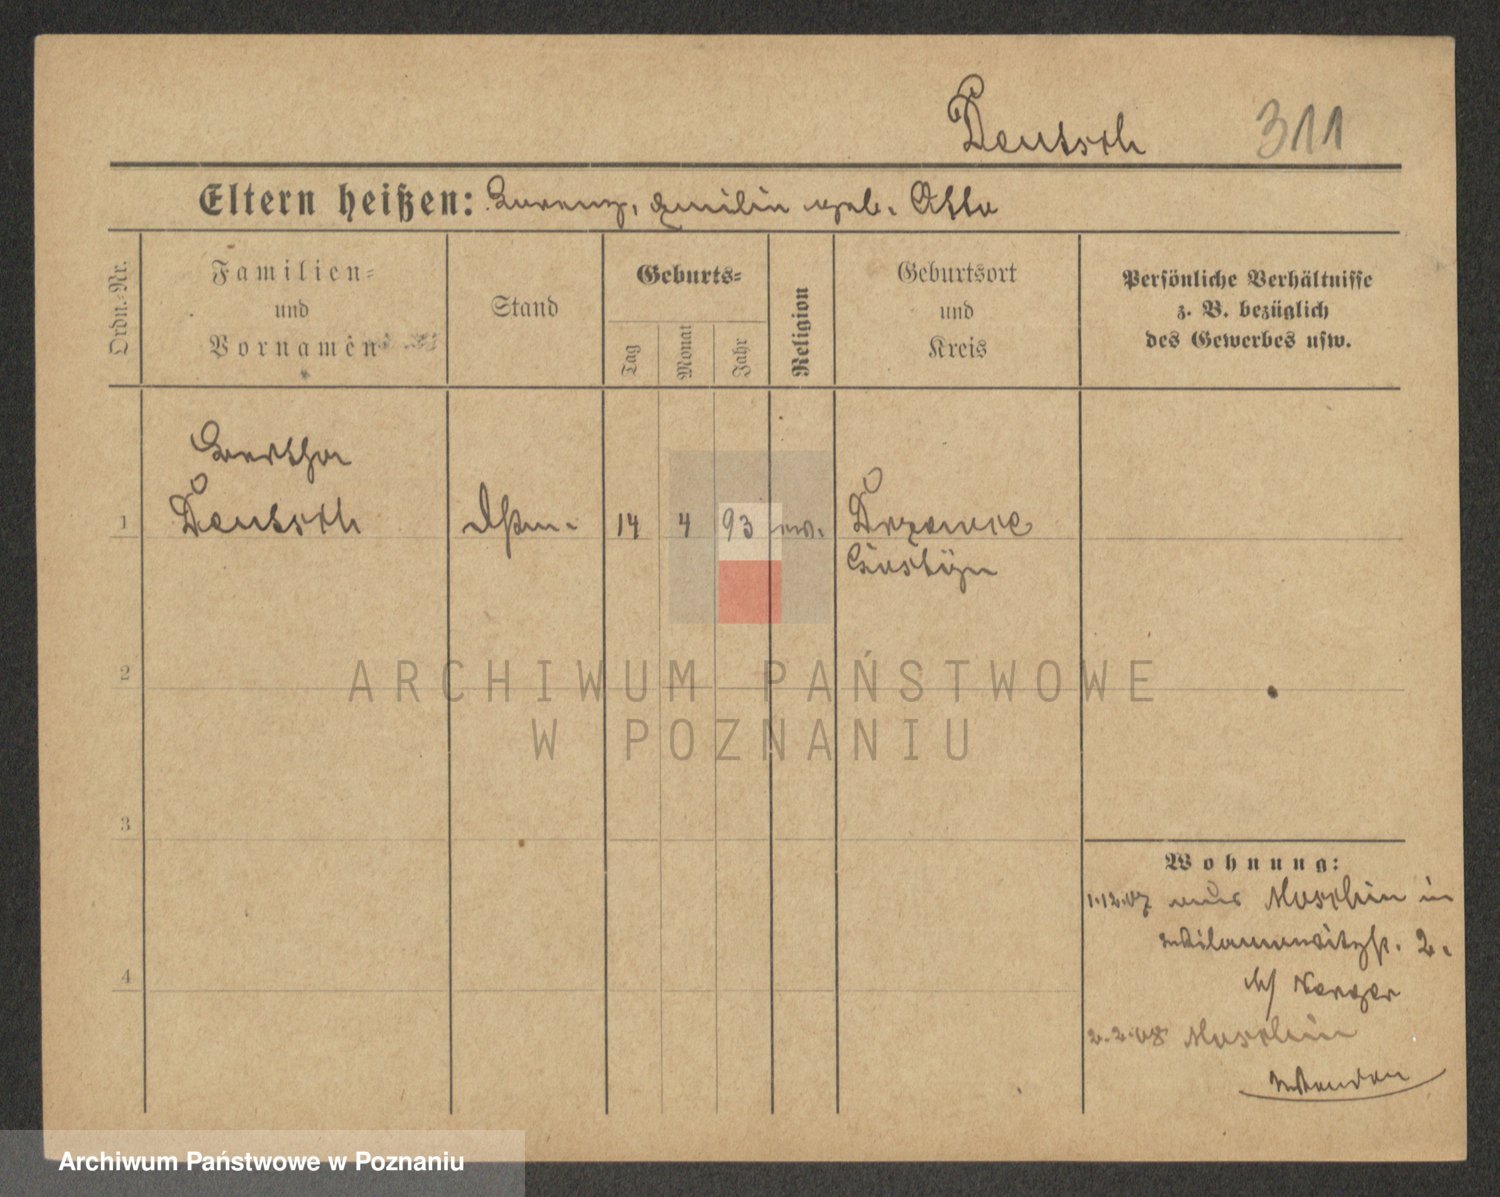 Deutsch 311
Eltern heißen: Lorenz, Emilie geb. Otto
Ordn.-Nr.
Familien-
und
Vornamen
Stand
Geburts-
Tag
Monat
Jahr
Religion
Geburtsort
und
Kreis
Persönliche Verhältnisse
z. B. bezüglich
des Gewerbes usw.
Bertha
1 Deutsch 14 4 93 ev. Drzewce
Gostyn
2
3
4
Wohnung:
1.12.07 aus Moschin in
2.
b/
2.2.08 Moschin
ARCHIWUM PAŃSTWOWE
W POZNANIU
Archiwum Państwowe w Poznaniu